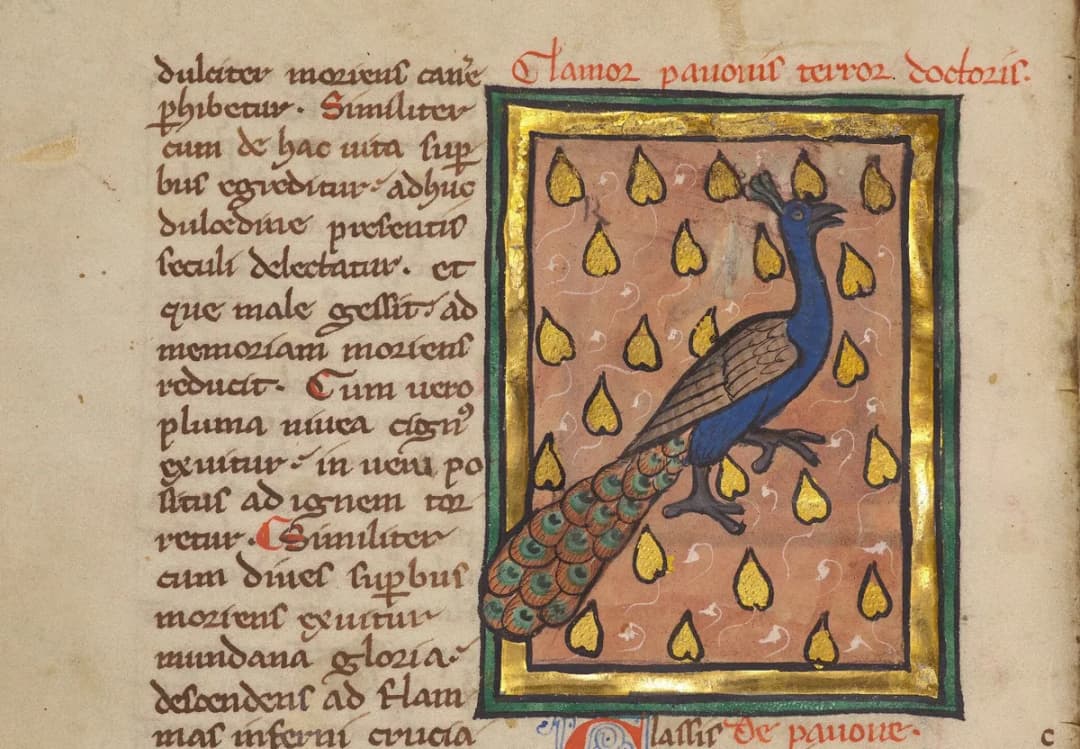 dulciter moriens can̄e
ꝑhibetur. Similiter
cum de hac uita suꝑ
bus egreditur adhuc
dulcedine presentis
seculi delectatur. et
que male gessit ad
memoriam moriens
reducit. Cum uero
pluma niuea cignꝰ
exuitur in ueru po
situs ad ignem tor
retur. Similiter
cum diues suꝑbus
moriens exuitur
mundana gloria
descendens ad flam
mas inferni crucia
Clamor pauonis terror doctoris.
Classis De pauone.
c